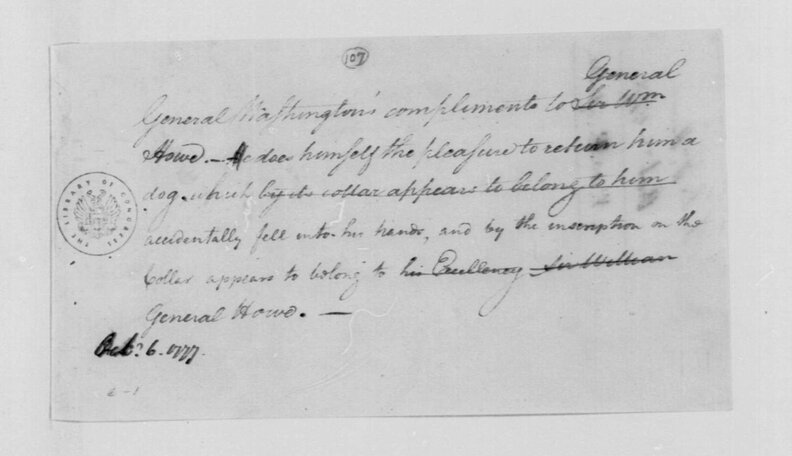 107
General
General Washington's compliments to Sir Wm
Howe. - He does himself the pleasure to return him a
dog, which by its collar appears to belong to him
accidentally fell into his hands, and by the inscription on the
Collar appears to belong to his Excellency Sir William
General Howe. —
Octbr. 6. 1777.
THE LIBRARY OF CONGRESS